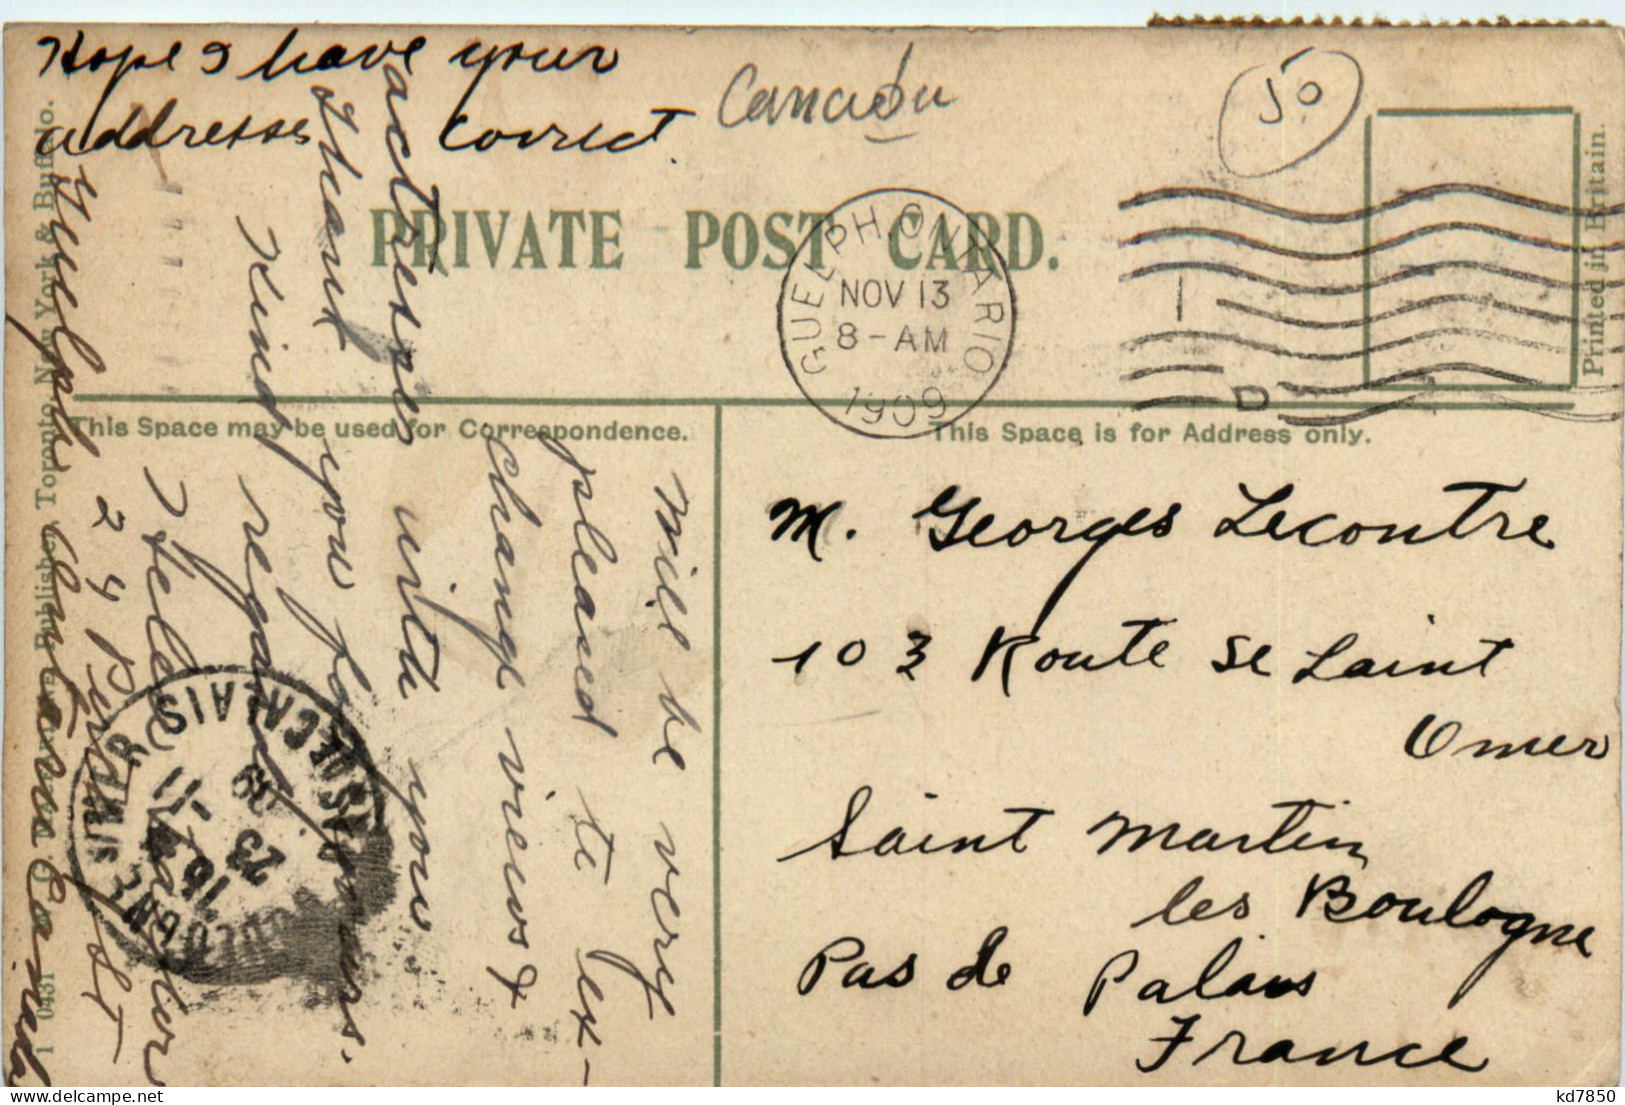 Hope I have your
addresses correct.
Canada
50
PRIVATE POST CARD.
GUELPH, ONTARIO
NOV 13
8-AM
1909
D
Printed in Britain.
This Space may be used for Correspondence.
This Space is for Address only.
Will be very
pleased to ex-
change views &
actresses with you
Thank you for yours.
Kind regards
Helen
24
St
Guelph
Ontario Canada
M. Georges Lecontre
103 Route de Saint
Omer
Saint Martin
les Boulogne
Pas de Calais
France
BOULOGNE SUR MER
PAS DE CALAIS
16
23 - 11
09
kd7850